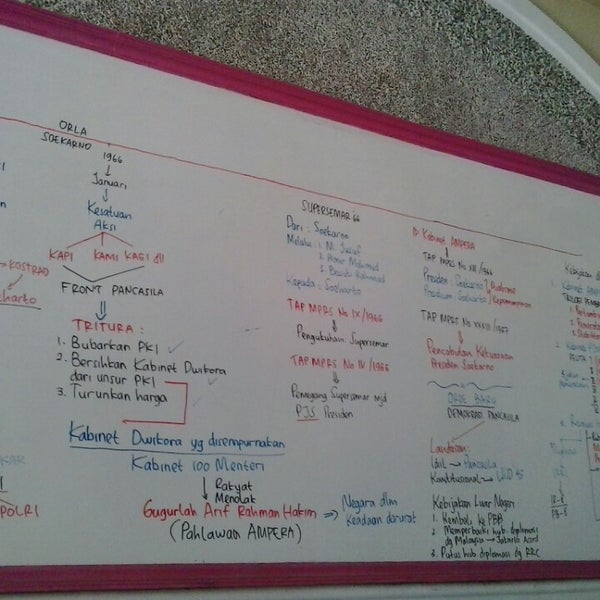 ORLA
SOEKARNO
1966
Januari
Kesatuan
Aksi
KAPI KAMI KAGI dll
FRONT PANCASILA
TRITURA :
1. Bubarkan PKI
2. Bersihkan Kabinet Dwikora
dari unsur PKI
3. Turunkan harga
Kabinet Dwikora yg disempurnakan
Kabinet 100 Menteri
Rakyat
Menolak
Gugurlah Arif Rahman Hakim
(Pahlawan AMPERA)
Negara dlm
Keadaan darurat
KOSTRAD
POLRI
SUPERSEMAR 66
Dari : Soekarno
Melalui : 1. M. Jusuf
2. Amir Mahmud
3. Basuki Rahmad
Kepada : Soeharto
TAP MPRS No IX/1966
Pengukuhan Supersemar
TAP MPRS No IV/1966
Pemegang Supersemar mjd
PJS Presiden
Kabinet AMPERA
TAP MPRS No XIII/1966
Presiden : Soekarno
Presidium Soeharto
Dualisme
Kepemimpinan
TAP MPRS No XXXIII/1967
Pencabutan Kekuasaan
Presiden Soekarno
ORDE BARU
DEMOKRASI PANCASILA
Landasan :
Idiil → Pancasila
Konstitusional → UUD 45
Kebijakan Luar Negeri
1. Kembali ke PBB
2. Memperbaiki hub. diplomasi
dg Malaysia → Jakarta Acord
3. Putus hub diplomasi dg RRC